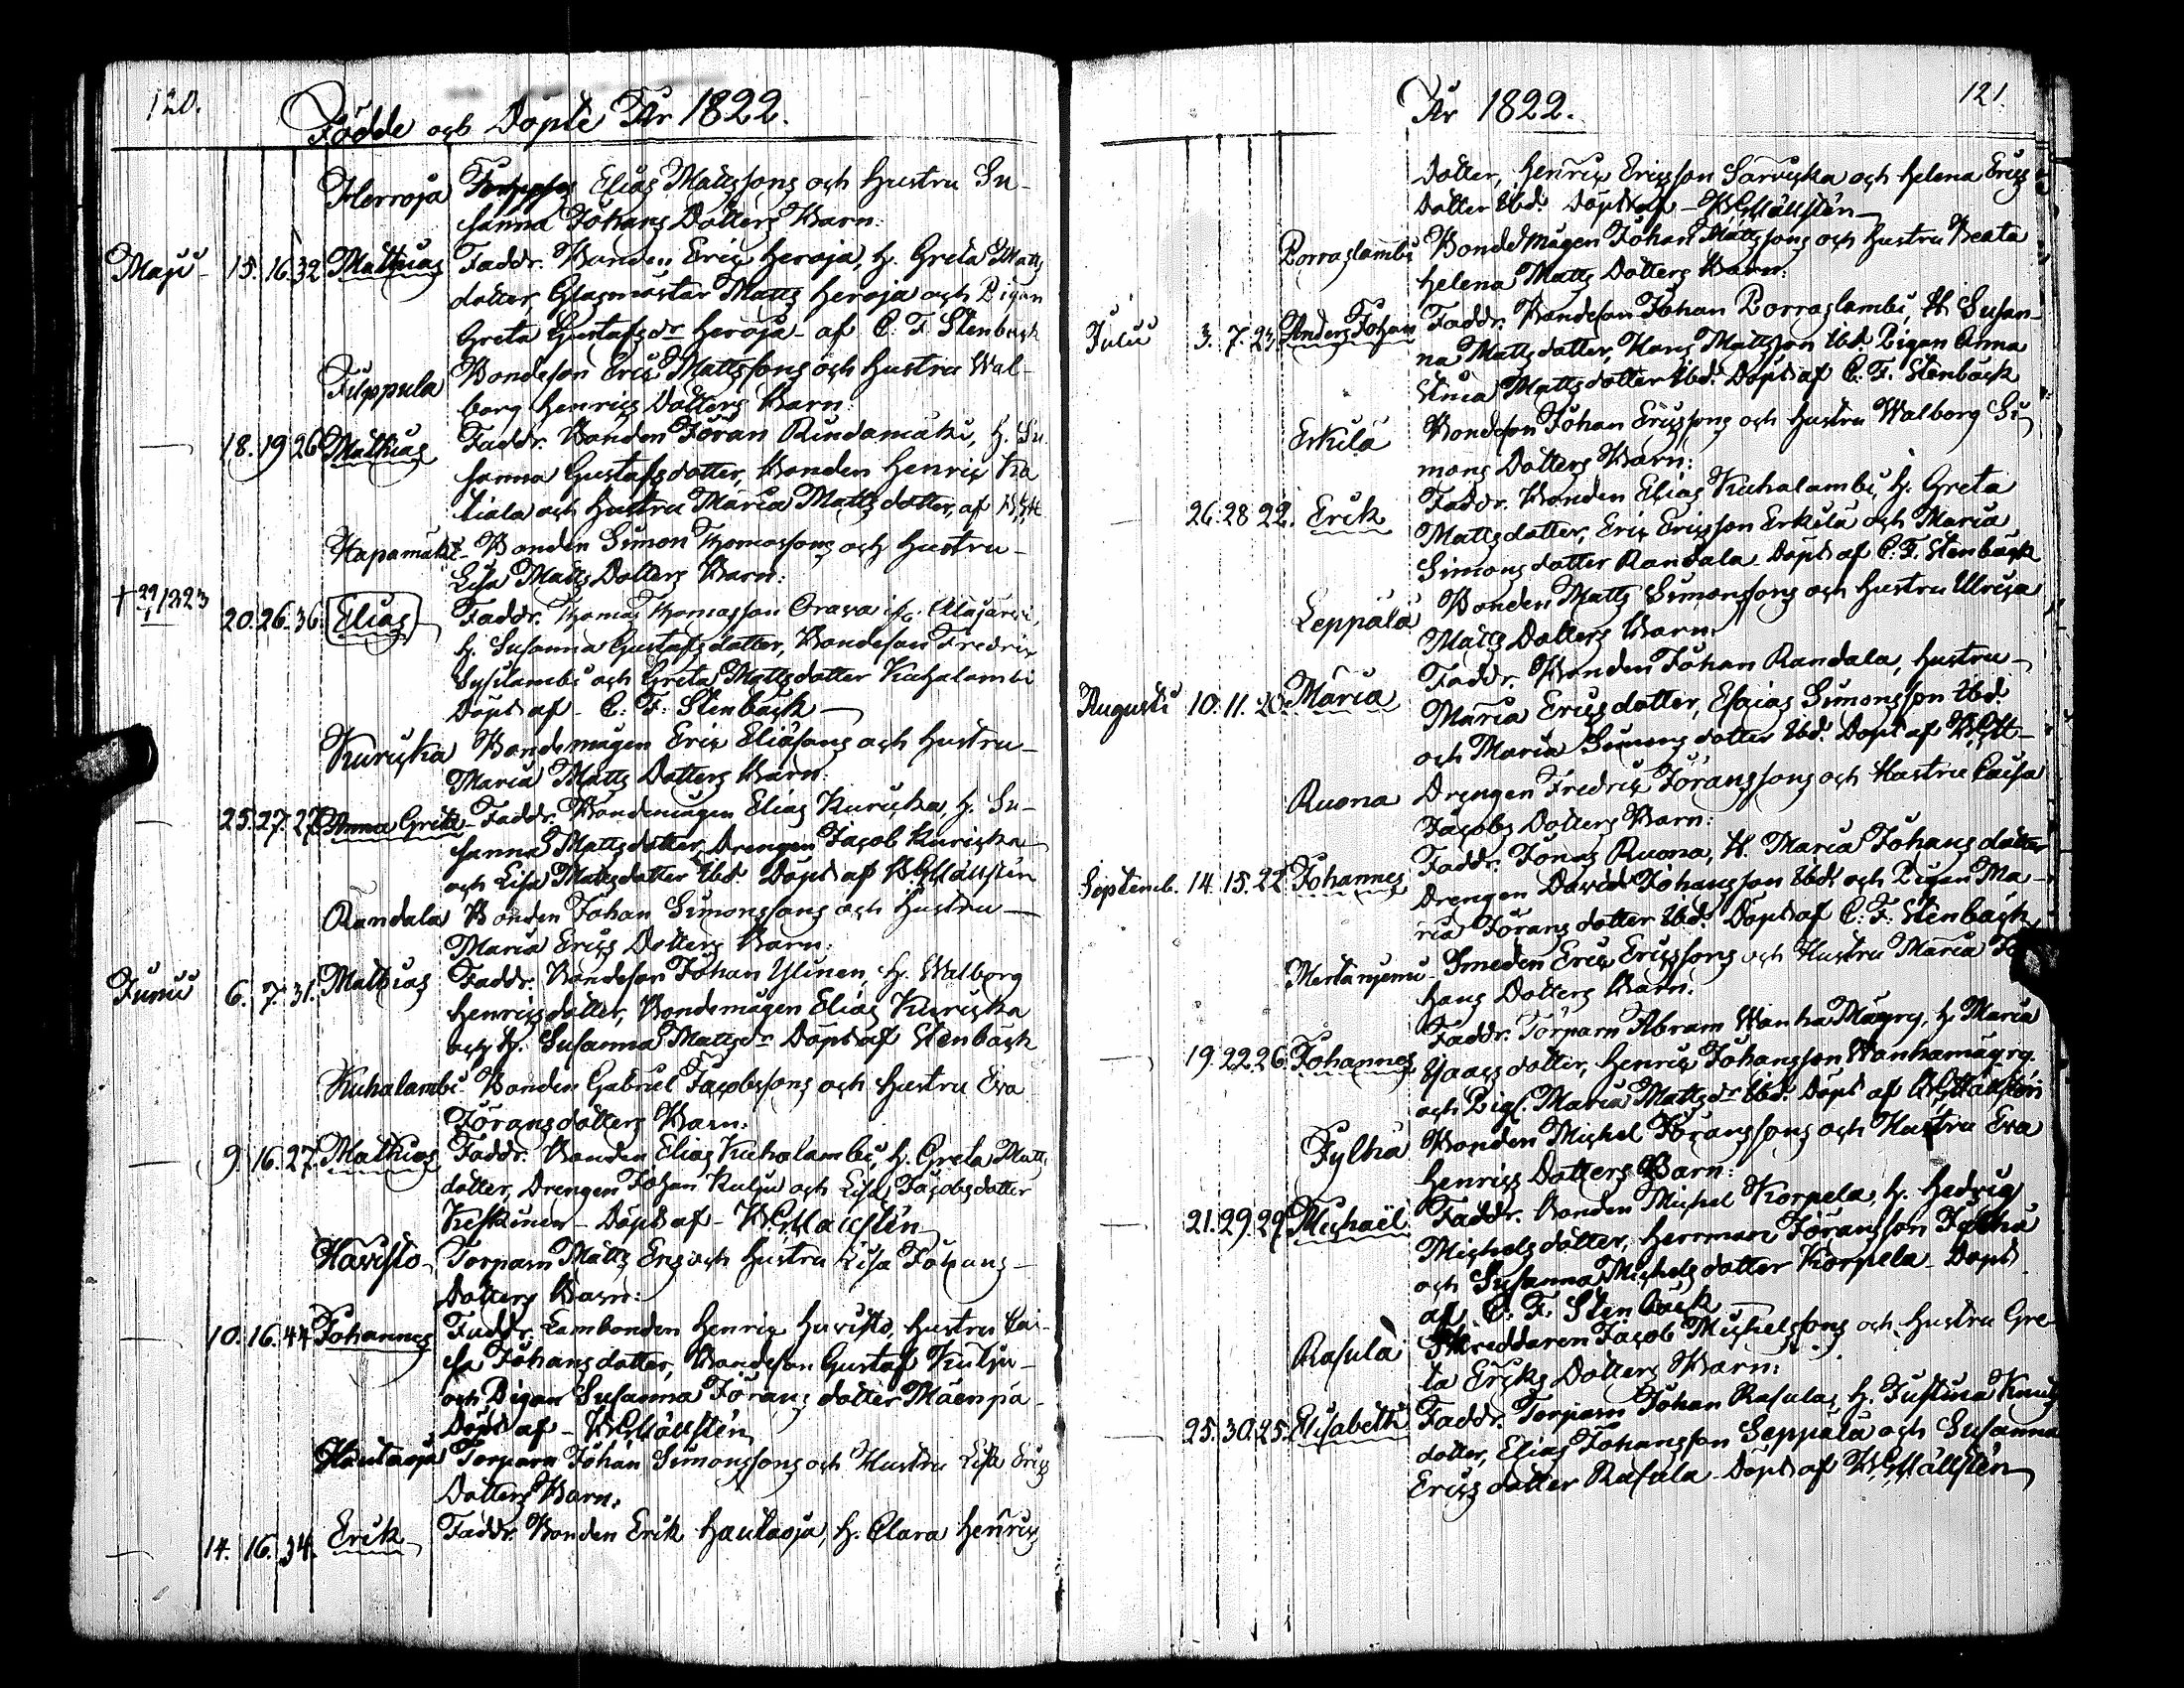 120.
Födde och Döpte År 1822.
Herroja Elias Mattssons och Hustru Su-
sanna Johans Dotters Barn:
Maji 15. 16. 32 Mathias Faddr. Bonden Eric Heroja, H. Greta Matts
dotter, Glasmästar Matts Heroja och Pigan
Greta Gustafsdr Heroja - af C. F. Stenbäck
Filppula Bondeson Eric Mattssons och Hustru Wal-
borg Henrics Dotters Barn:
— 18. 19 26 Mathias Faddr. Bonden Jöran Rindamäki, H. Su
sanna Gustafsdotter, Bonden Henric Ka
tiala och Hustru Maria Matts dotter, af
Hapamäki - Bonden Simon Thomassons och Hustru -
Lisa Matts Dotters Barn:
† 29/1 1823 20. 26. 36. Elias Faddr. Thomas Thomasson Orava ifr. Alajärvi,
H. Susanna Gustafsdotter, Bondeson Fredric
Sysilambi och Greta Mattsdotter Kuhalambi
Döpt af - C: F: Stenbäck —
Kuricka Bondemågen Eric Eliæsons och Hustru -
Maria Matts Dotters Barn:
— 25. 27. 27 Anna Greta - Faddr. Bondemågen Elias Kuricka, H. Su-
sanna Mattsdotter, Drengen Jacob Kuricka
och Lisa Mattsdotter Ibd. Döpt af
Randala Bonden Johan Simonssons och Hustru —
Maria Erics Dotters Barn:
Junii 6. 7. 31. Mathias Faddr. Bondeson Johan Ylinen, H. Walborg
Henricsdotter, Bondemågen Elias Kuricka
och H. Susanna Mattsdr Döpt af Stenbäck
Kuhalambi - Bonden Gabriel Jacobssons och Hustru Eva
Jöransdotters Barn:
— 9. 16. 27. Mathias Faddr. Bonden Elias Kuhalambi, H. Greta Matts
dotter, Drengen Johan Kulju och Lisa Jacobsdotter
Keskinen - Döpt af -
Havisto - Torparn Matts Erics och Hustru Lisa Johans -
Dotters Barn:
— 10. 16. 44 Johannes Faddr. Lambonden Henric Havisto, Hustru Cai-
sa Johansdotter, Bondeson Gustaf Kulju -
och Pigan Susanna Jörans dotter Mäenpä -
Döpt af -
Hautaoja Torparn Johan Simonssons och Hustru Lisa Erics
Dotters Barn:
— 14. 16. 34. Erik Faddr. Bonden Erik Hautaoja, H. Clara Henrics
121.
År 1822.
dotter, Henric Ericsson Sarvicka och Helena Erics
Dotter Ibd. Döpt af -
Porraslambi Bondemågen Johan Mattssons och Hustru Beata
Helena Matts Dotters Barn:
Julii 3. 7. 23. Anders Johan Faddr. Bondeson Johan Porraslambi, H. Susan-
na Mattsdotter, Hans Mattsson Ibd. Pigan Anna
Stina Mattsdotter Ibd. Döpt af C: F. Stenbäck
Erkilä Bondeson Johan Ericssons och Hustru Walborg Si
mons Dotters Barn:
— 26. 28 22. Erik Faddr. Bonden Elias Kuhalambi, H. Greta
Mattsdotter, Eric Ericsson Erkilä och Maria
Simonsdotter Randala. Döpt af C: F. Stenbäck
Leppälä Bonden Matts Simonssons och Hustru Ulrica
Matts Dotters Barn:
Augusti 10. 11. 20. Maria Faddr. Bonden Johan Randala, Hustru -
Maria Ericsdotter, Esaias Simonsson Ibd.
och Maria Simons dotter Ibd. Döpt af
Ruona Drengen Fredric Jöranssons och Hustru Caisa
Jacobs Dotters Barn:
Septemb. 14. 15. 22 Johannes Faddr. Jonas Ruona, H. Maria Johansdotter
Drengen David Johansson Ibd. och Pigan Ma-
ria Jörans dotter Ibd. Döpt af C: F. Stenbäck
Smeden Eric Ericssons och Hustru Maria
hans Dotters Barn:
— 19. 22. 26. Johannes Faddr. Torparn Abram Wanha Mägry, H. Maria
Isaacs dotter, Henric Johansson Wanhamägry.
och Pig. Maria Mattsdr Ibd. Döpt af
Jylhä Bonden Michel Jöranssons och Hustru Eva
Henrics Dotters Barn:
— 21. 29. 29. Michaël Faddr. Bonden Michel Korpela, H. Hedvig
Michelsdotter, Herrman Jöransson Jylhä
och Susanna Michels dotter Korpela - Döpt
af, C: F. Stenbäck —
Rasula Skreddaren Jacob Michelssons och Hustru Gre-
ta Ericks Dotters Barn:
— 25. 30. 25. Elisabeth Faddr. Torparn Johan Rasula, H. Justina Knuts
dotter, Elias Johansson Seppälä och Susanna
Erics dotter Rasula - Döpt af